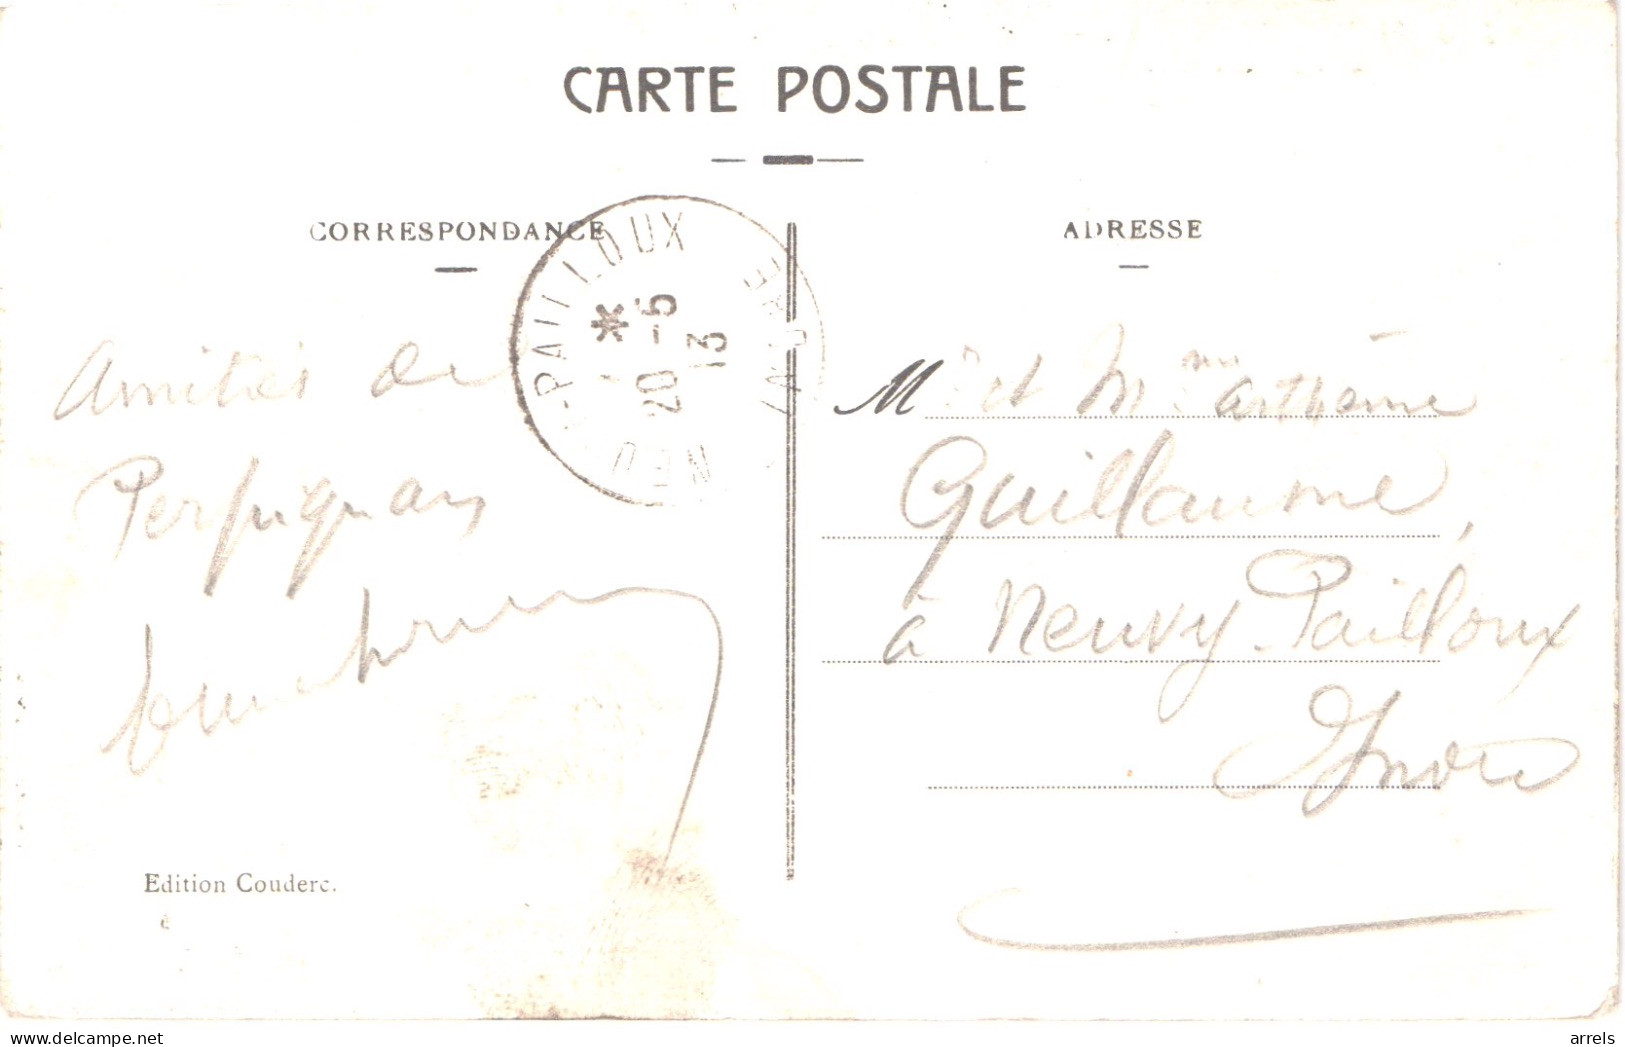 CARTE POSTALE
CORRESPONDANCE
ADRESSE
NEU -PAILLOUX
*
20 -5
13
Amitiés de
Perpignan
M r et Mme arthème
Guillaume,
à Neuvy-Pailloux
Indre
Edition Couderc.
arrels